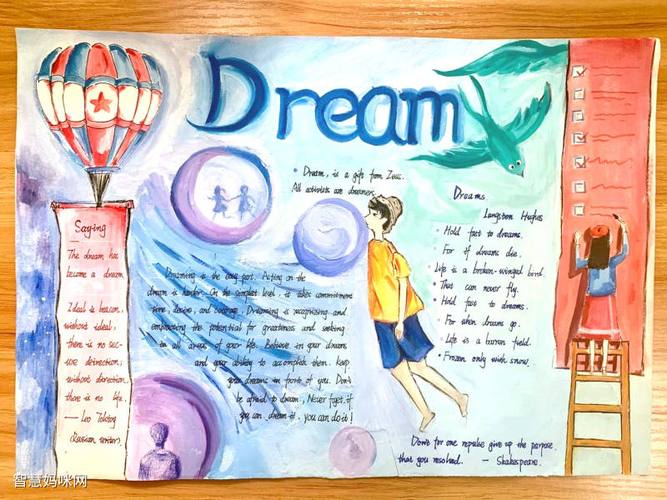 Dream
Saying
The dream has
become a dream
Ideal is beacon,
without ideal,
there is no sec-
ure direction;
without direction
there is no life.
— Leo Tolstoy
(Russian writer).
Dream, is a gift from Zeus.
All activists are dreamers.
Dreaming is the easy part. Acting on the
dream is harder. On the simplest level, it takes commitment
time, desire, and courage. Dreaming is recognizing and
embracing the potential for greatness and seeking
in all areas of your life. Believe in your dream
and your ability to accomplish them. Keep
your dreams in front of you. Don't
be afraid to dream. Never forget, if
you can dream it, you can do it!
Dreams
Langston Hughes
Hold fast to dreams.
For if dreams die.
Life is a broken-winged bird.
That can never fly.
Hold fast to dreams.
For when dreams go.
Life is a barren field.
Frozen only with snow.
Don't for one repulse give up the purpose
that you resolved. — Shakespeare.
智慧妈咪网